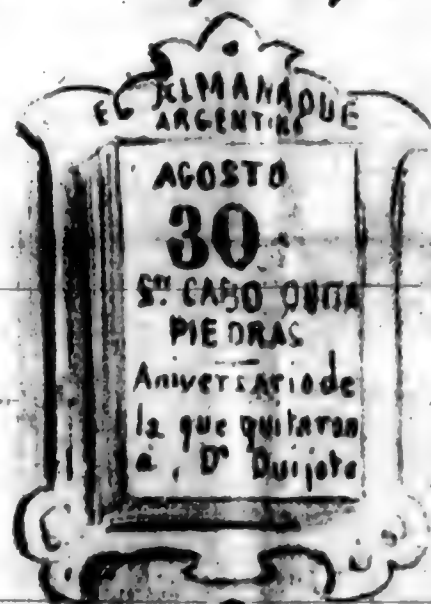 EL ALMANAQUE
ARGENTINO
AGOSTO
30
Sn. CABO QUITA
PIEDRAS
Aniversario de
la que quitaron
a Dn Quijote